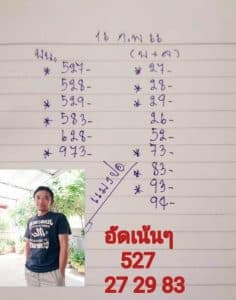 16 ก.พ 66
(บ+ล)
* 527- * 27-
528- * 28-
* 529- * 29-
* 583- 26-
628- 52-
* 973- * 73-
* 83-
* 93-
94-
แม่รวย
อัดเน้นๆ
527
27 29 83